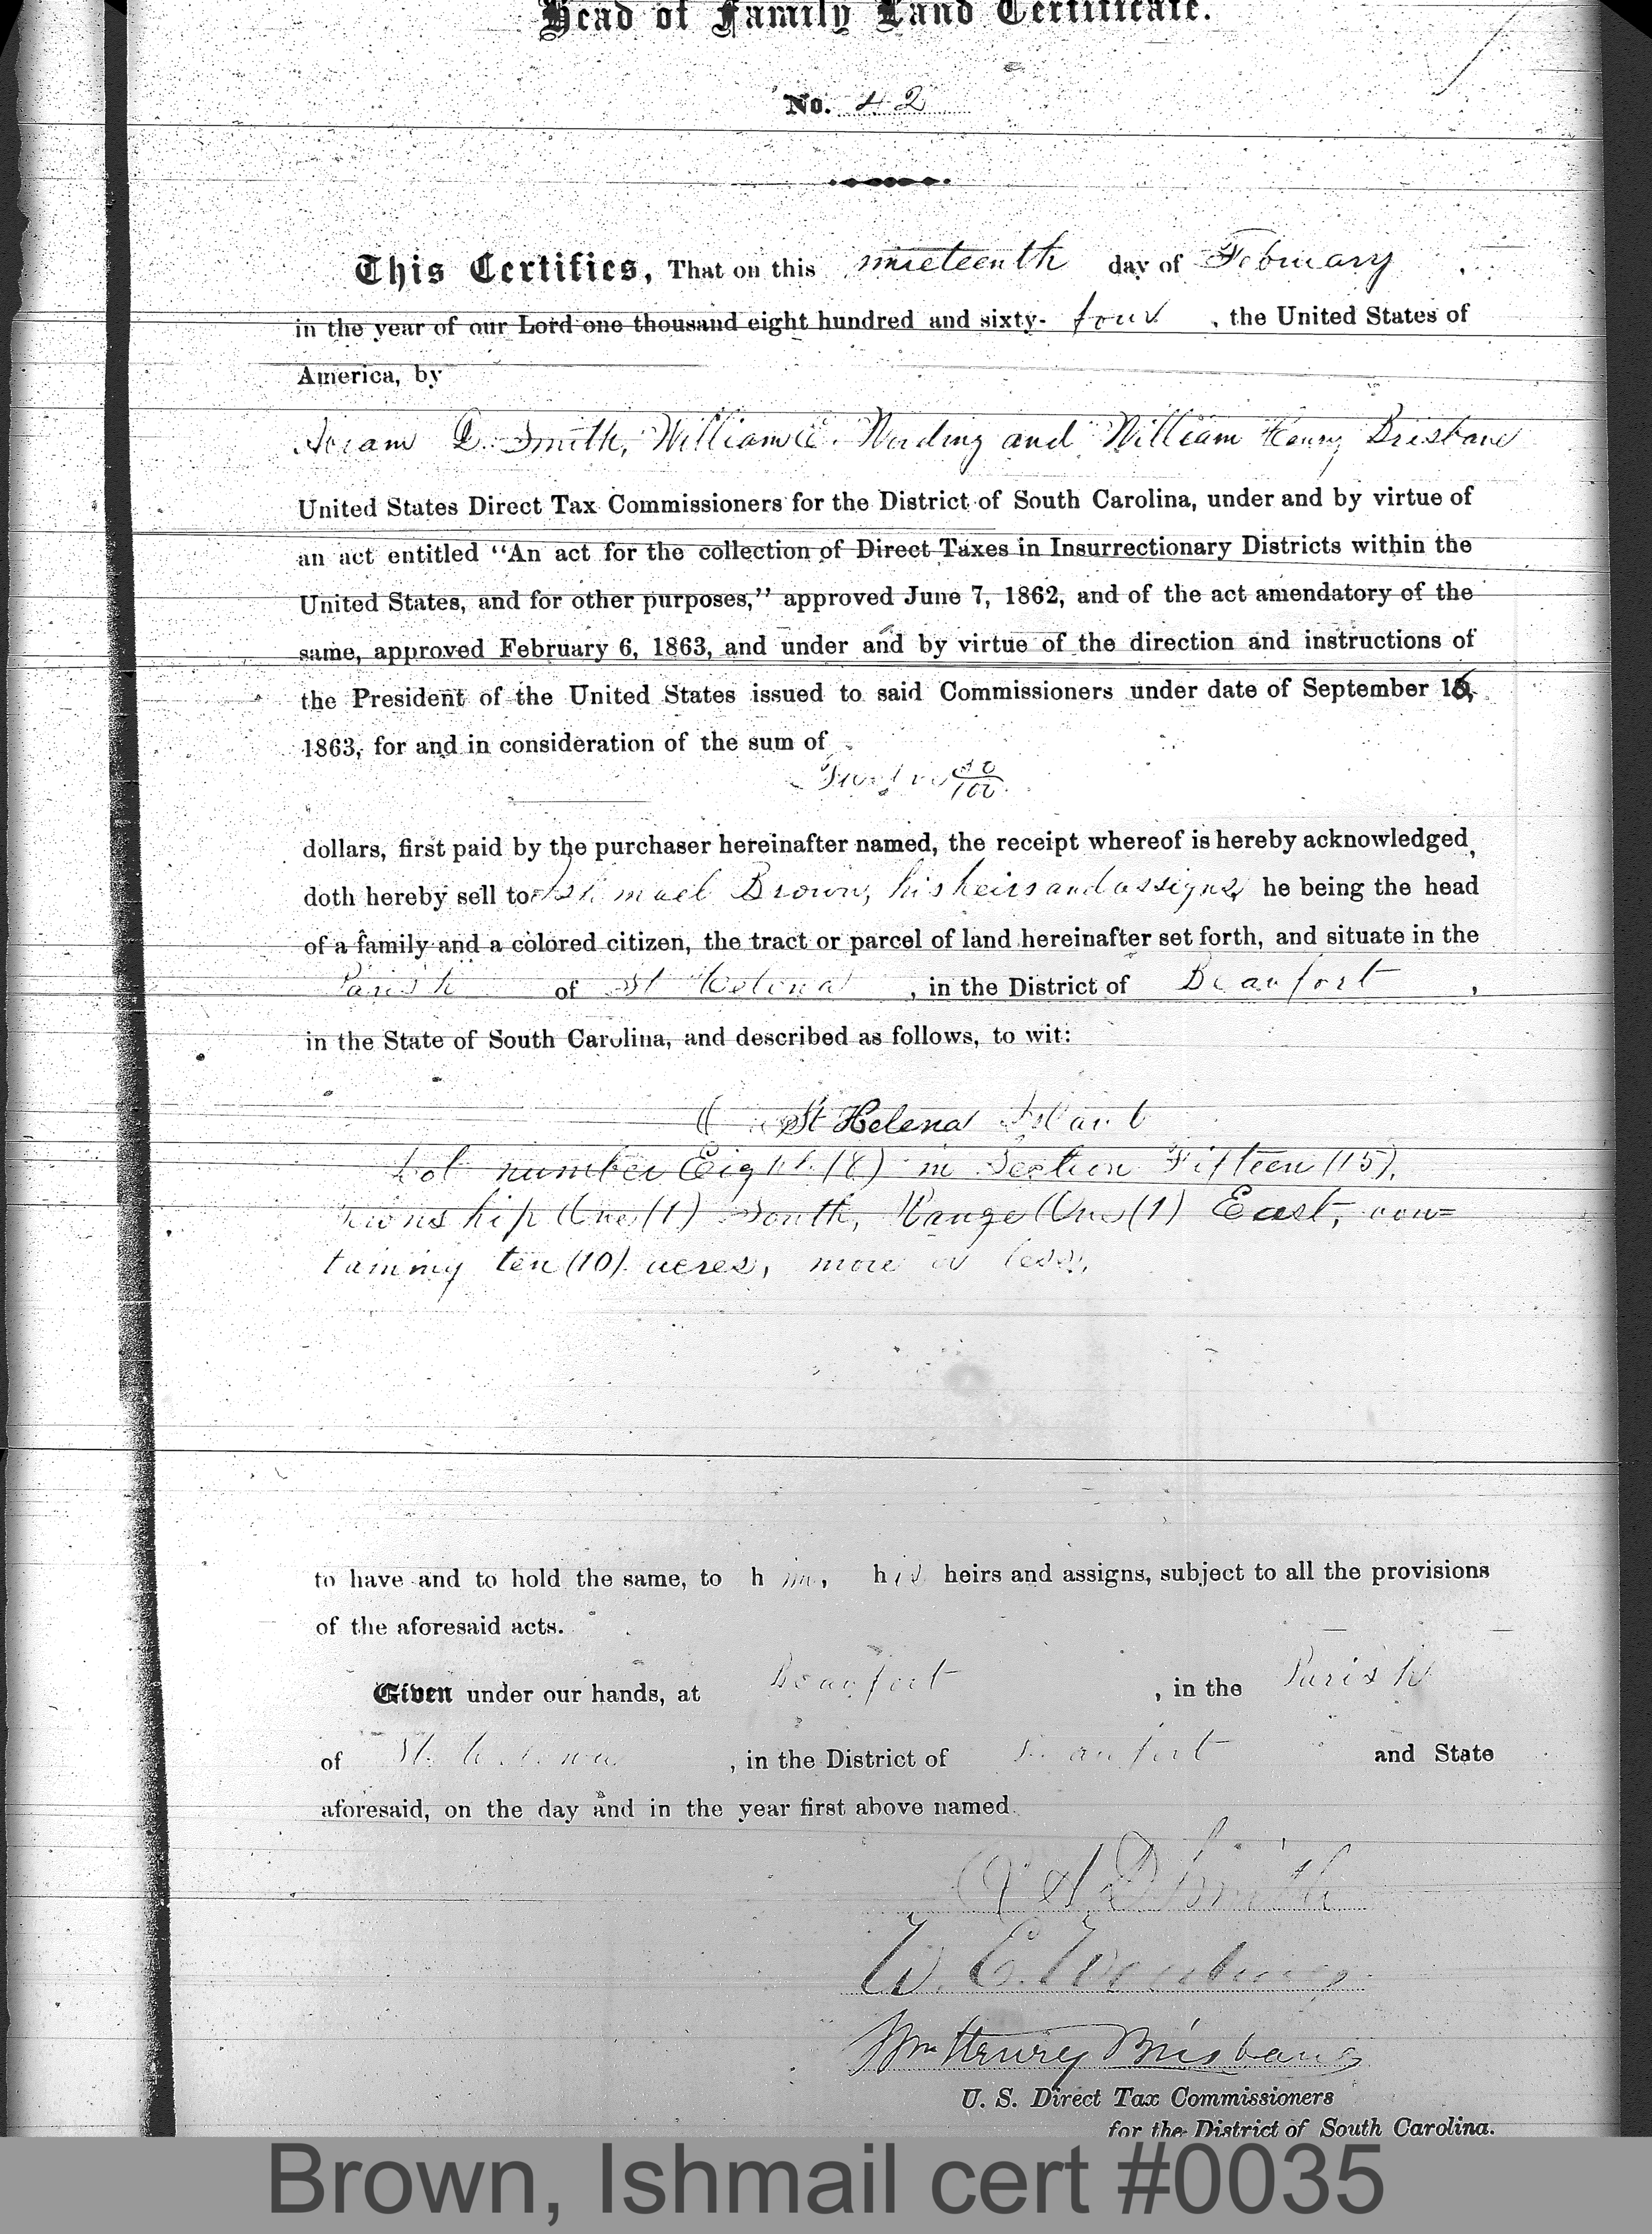 Head of Family Land Certificate.
No. 42
This Certifies, That on this nineteenth day of February
in the year of our Lord one thousand eight hundred and sixty- four , the United States of
America, by
D. Smith, William E. Wording and William Henry Brisbane
United States Direct Tax Commissioners for the District of South Carolina, under and by virtue of
an act entitled "An act for the collection of Direct Taxes in Insurrectionary Districts within the
United States, and for other purposes," approved June 7, 1862, and of the act amendatory of the
same, approved February 6, 1863, and under and by virtue of the direction and instructions of
the President of the United States issued to said Commissioners under date of September 16,
1863, for and in consideration of the sum of
Twelve /100
dollars, first paid by the purchaser hereinafter named, the receipt whereof is hereby acknowledged,
doth hereby sell to Ishmael Brown, his heirs and assigns, he being the head
of a family and a colored citizen, the tract or parcel of land hereinafter set forth, and situate in the
Parish of St Helena , in the District of Beaufort ,
in the State of South Carolina, and described as follows, to wit:
St Helena Island
Lot number Eight (8) in Section Fifteen (15),
Township One (1) South, Range One (1) East, con=
taining ten (10) acres, more or less,
to have and to hold the same, to him, his heirs and assigns, subject to all the provisions
of the aforesaid acts.
Given under our hands, at Beaufort , in the Parish
of St. Helena , in the District of Beaufort and State
aforesaid, on the day and in the year first above named.
A D Smith
W. E. Wording
Wm Henry Brisbane
U. S. Direct Tax Commissioners
for the District of South Carolina.
Brown, Ishmail cert #0035